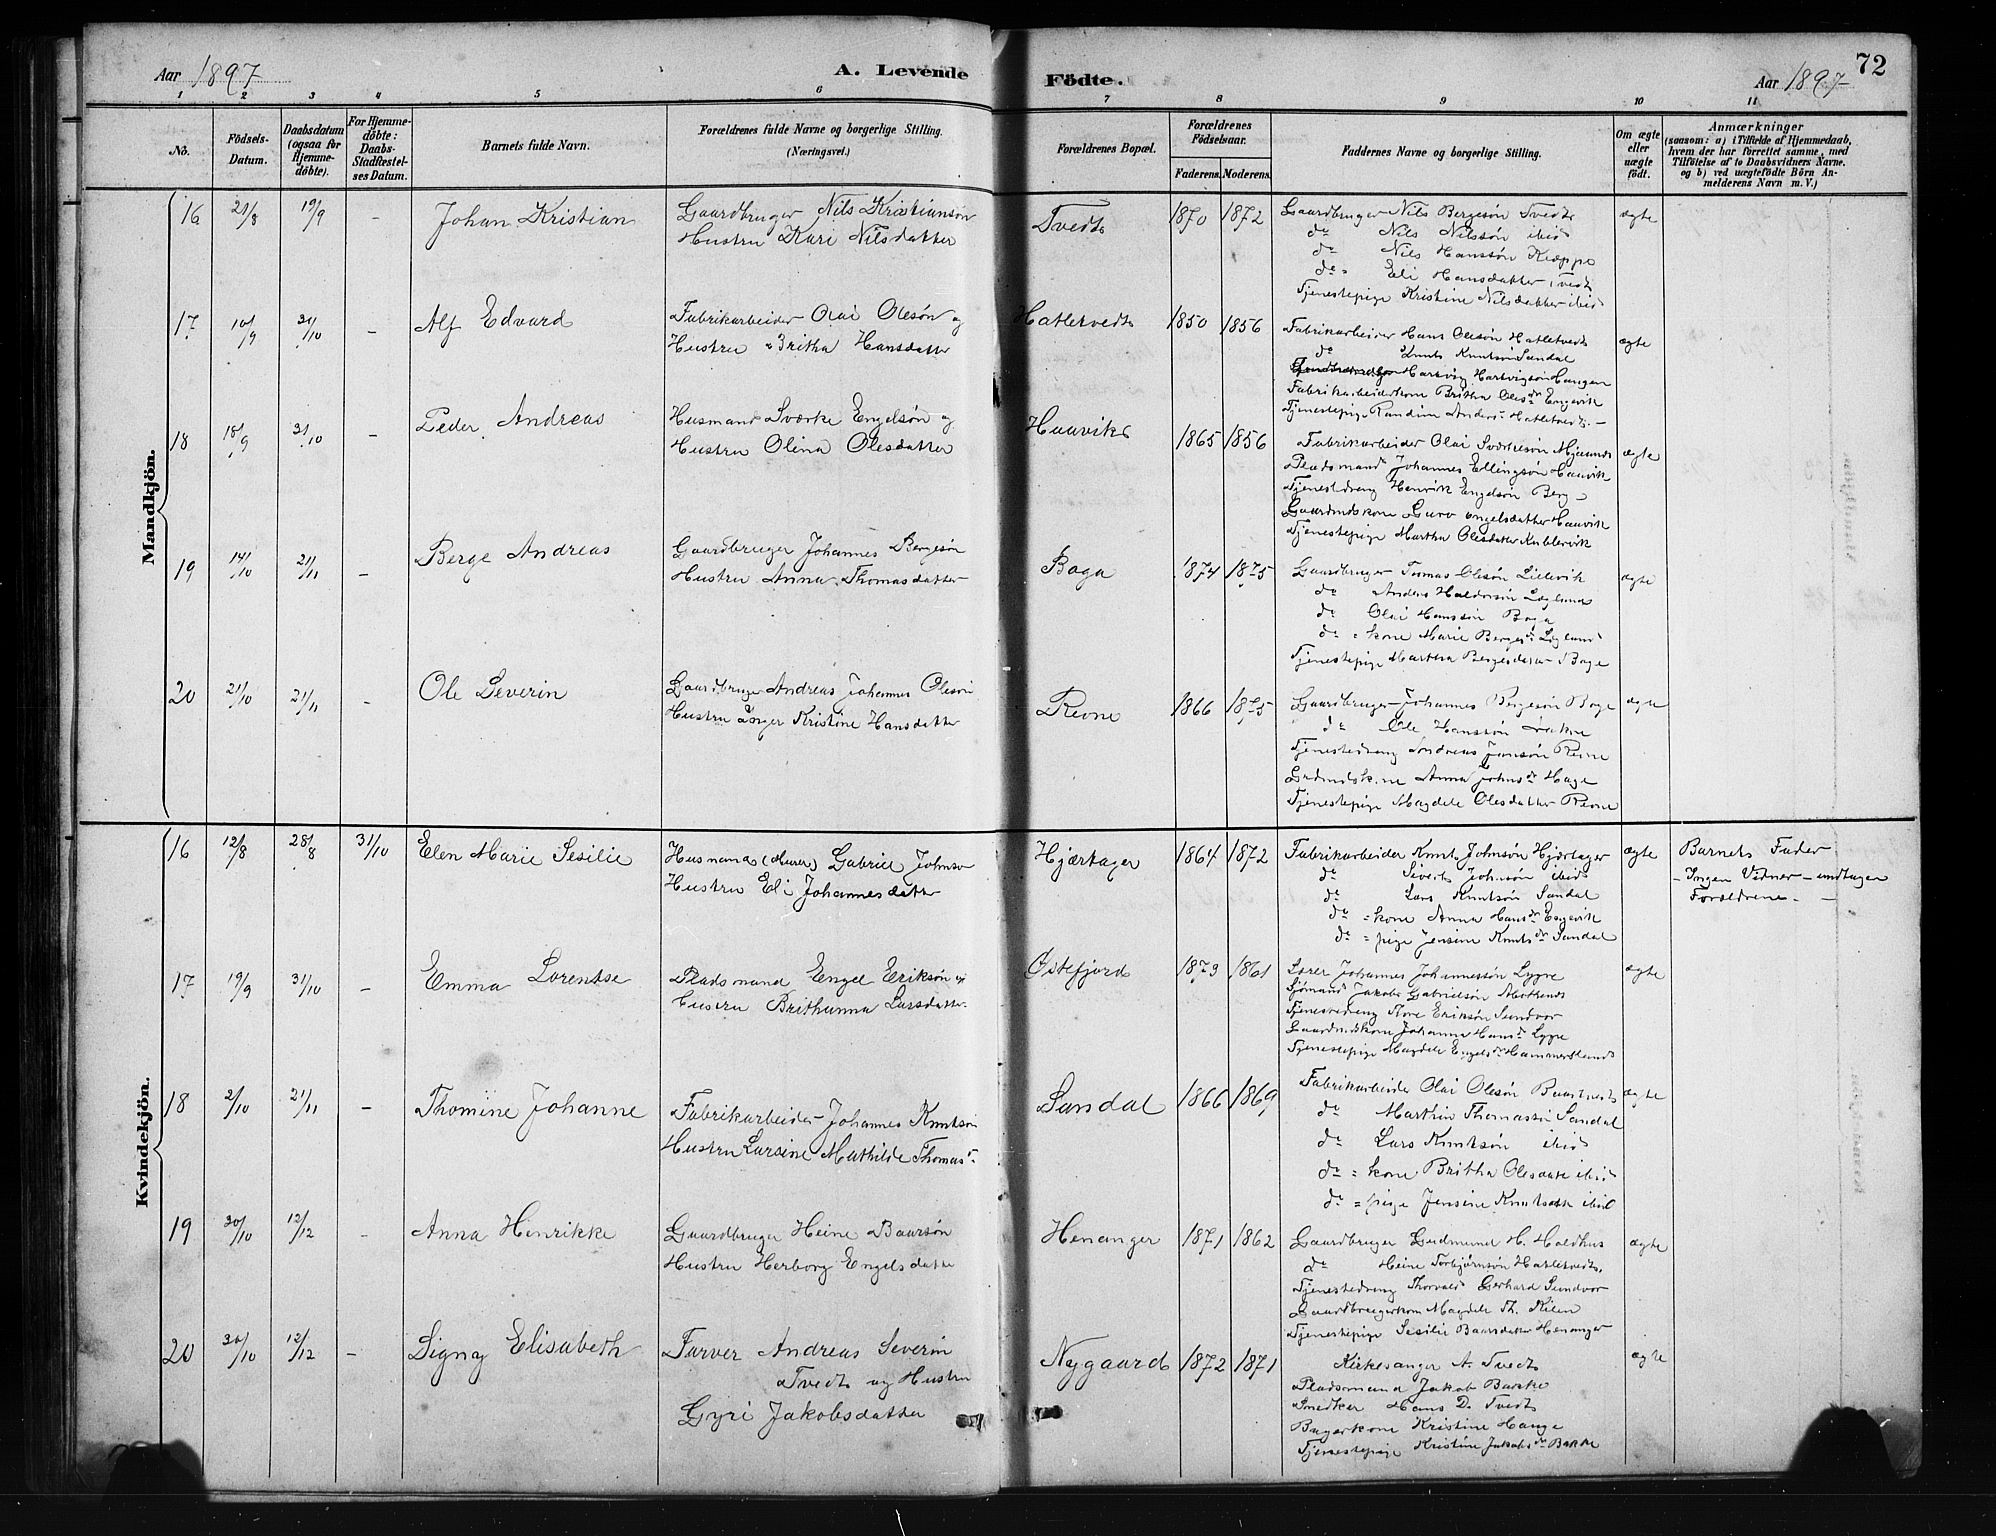 72
Aar 1897
A. Levende Födte.
Aar 1897
1 2 3 4 5 6 7 8 9 10 11
No.
Födsels-Datum.
Daabsdatum (ogsaa for Hjemme-döbte).
For Hjemme-döbte: Daabs-Stadfæstel-ses Datum.
Barnets fulde Navn.
Forældrenes fulde Navne og borgerlige Stilling.
(Næringsvei.)
Forældrenes Bopæl.
Forældrenes Födselsaar.
Faderens. Moderens.
Faddernes Navne og borgerlige Stilling.
Om ægte eller uægte födt.
Anmærkninger
(saasom: a) i Tilfælde af Hjemmedaab,
hvem der har forrettet samme, med
Tilföielse af to Daabsvidners Navne,
og b) ved uægtefödte Börn An-
melderens Navn m. V.)
Mandkjön.
16 21/8 19/9 - Johan Kristian
Gaardbruger Nils Kristiansön
Hustru Kari Nilsdatter
Tvedt 1870 1872
Gaardbruger Nils Bergesön Tvedt
do Nils Nilssön ibid
do Nils Hanssön Kleppe
do Eli Hansdatter Tvedt
Tjenestepige Kristine Nilsdatter ibid
ægte
17 10/9 31/10 - Alf Edvard
Fabrikarbeider Olai Olesön og
Hustru Britha Hansdatter
Hatletvedt 1850 1856
Fabrikarbeider Hans Olesön Hatletvedt
do Knut Knutsön Sandal
Hartvig Hartvigsön Haugen
Fabrikarbeiderkone Britha Olesdr Engevik
Tjenestepige Randine Anders- Hatletvedt -
ægte
18 18/9 31/10 - Peder Andreas
Husmand Sværke Engelsön og
Hustru Olina Olesdatter
Haavik 1865 1856
Fabrikarbeider Olai Sværkesön
Pladsmand Johannes Ellingsön Haavik
Tjenestedreng Henrik Engelsön Berg -
Gaardmdskone Guro Engelsdatter Haavik
Tjenestepige Martha Olesdatter
ægte
19 14/10 21/11 - Berge Andreas
Gaardbruger Johannes Bergesön
Hustru Anna Thomasdatter
Boga 1874 1875
Gaardbruger Tomas Olesön Lillevik
do Anders Haldorsön
do Olai Hanssön Boga
do = kone Marie Bergesdr
Tjenestepige Martha Bergesdatter Boge
ægte
20 21/10 21/11 - Ole Severin
Gaardbruger Andreas Johannes Olesön
Hustru Inger Kristine Hansdatter
Revne 1866 1875
Gaardbruger Johannes Bergesön Boge
do Ole Hanssön
Tjenestedreng Andreas Jonsön Revne
Grdmdskone Anna Johnsdr Hage
Tjenestepige Magdele Olesdatter Revne
ægte
Kvindekjön.
16 12/8 28/8 31/10 Elen Marie Sesilie
Husmand (Murer) Gabriel Johnsön
Hustru Eli Johannesdatter
Hjærtager 1864 1872
Fabrikarbeider Knut Johnsön Hjærtager
do Sivert Johnsön ibid
do Lars Knutsön Sandal
do = kone Anna Hansdr Engevik
do = pige Jensine Knutsdr Sandal
ægte
Barnets Fader
- Ingen Vidner - undtagen
Forældrene. -
17 19/9 31/10 - Emma Lorentse
Pladsmand Engel Eriksön og
Hustru Brithanna Larsdatter
Østefjord 1873 1861
Lærer Johannes Johannessön Lygre
Sjömand Jakob Gabrielsön
Tjenestedreng Tore Eriksön Sundvor
Gaardmdskone Johanna Hansdr Lygre
Tjenestepige Magdele Engelsdr Hammersland
ægte
18 2/10 21/11 - Thomine Johanne
Fabrikarbeider Johannes Knutsön
Hustru Larsine Mathilde Thomasdr
Sandal 1866 1869
Fabrikarbeider Olai Olesön
do Marthin Thomassön Sandal
do Lars Knutsön ibid
do = kone Britha Olesdatter ibid
do = pige Jensine Knutsdatter ibid
ægte
19 30/10 12/12 - Anna Henrikke
Gaardbruger Heine Baarsön
Hustru Herborg Engelsdatter
Henanger 1871 1862
Gaardbruger Gudmund H. Holdhus
do Heine Torbjørnsön Hatletvedt,
Tjenestedreng Thorvald Gerhard Sundvor
Gaardbrugerkone Magdele Th. Kilen
Tjenestepige Sesilie Baarsdatter Henanger
ægte
20 30/10 12/12 - Signy Elisabeth
Farver Andreas Severin
Tvedt og Hustru
Gyri Jakobsdatter
Nygaard 1872 1871
Kirkesanger A. Tvedt
Pladsmand Jakob Bakke
Snedker Hans D. Tvedt
Bagerkone Kristine Hauge
Tjenestepige Kristine Jakobsdr Bakke
ægte